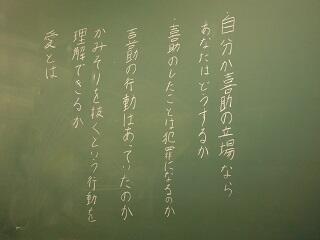 ・自分が喜助の立場なら
あなたはどうするか
・喜助のしたことは犯罪になるのか
・喜助の行動はあっていたのか
かみそりを抜くという行動を
理解できるか
愛とは